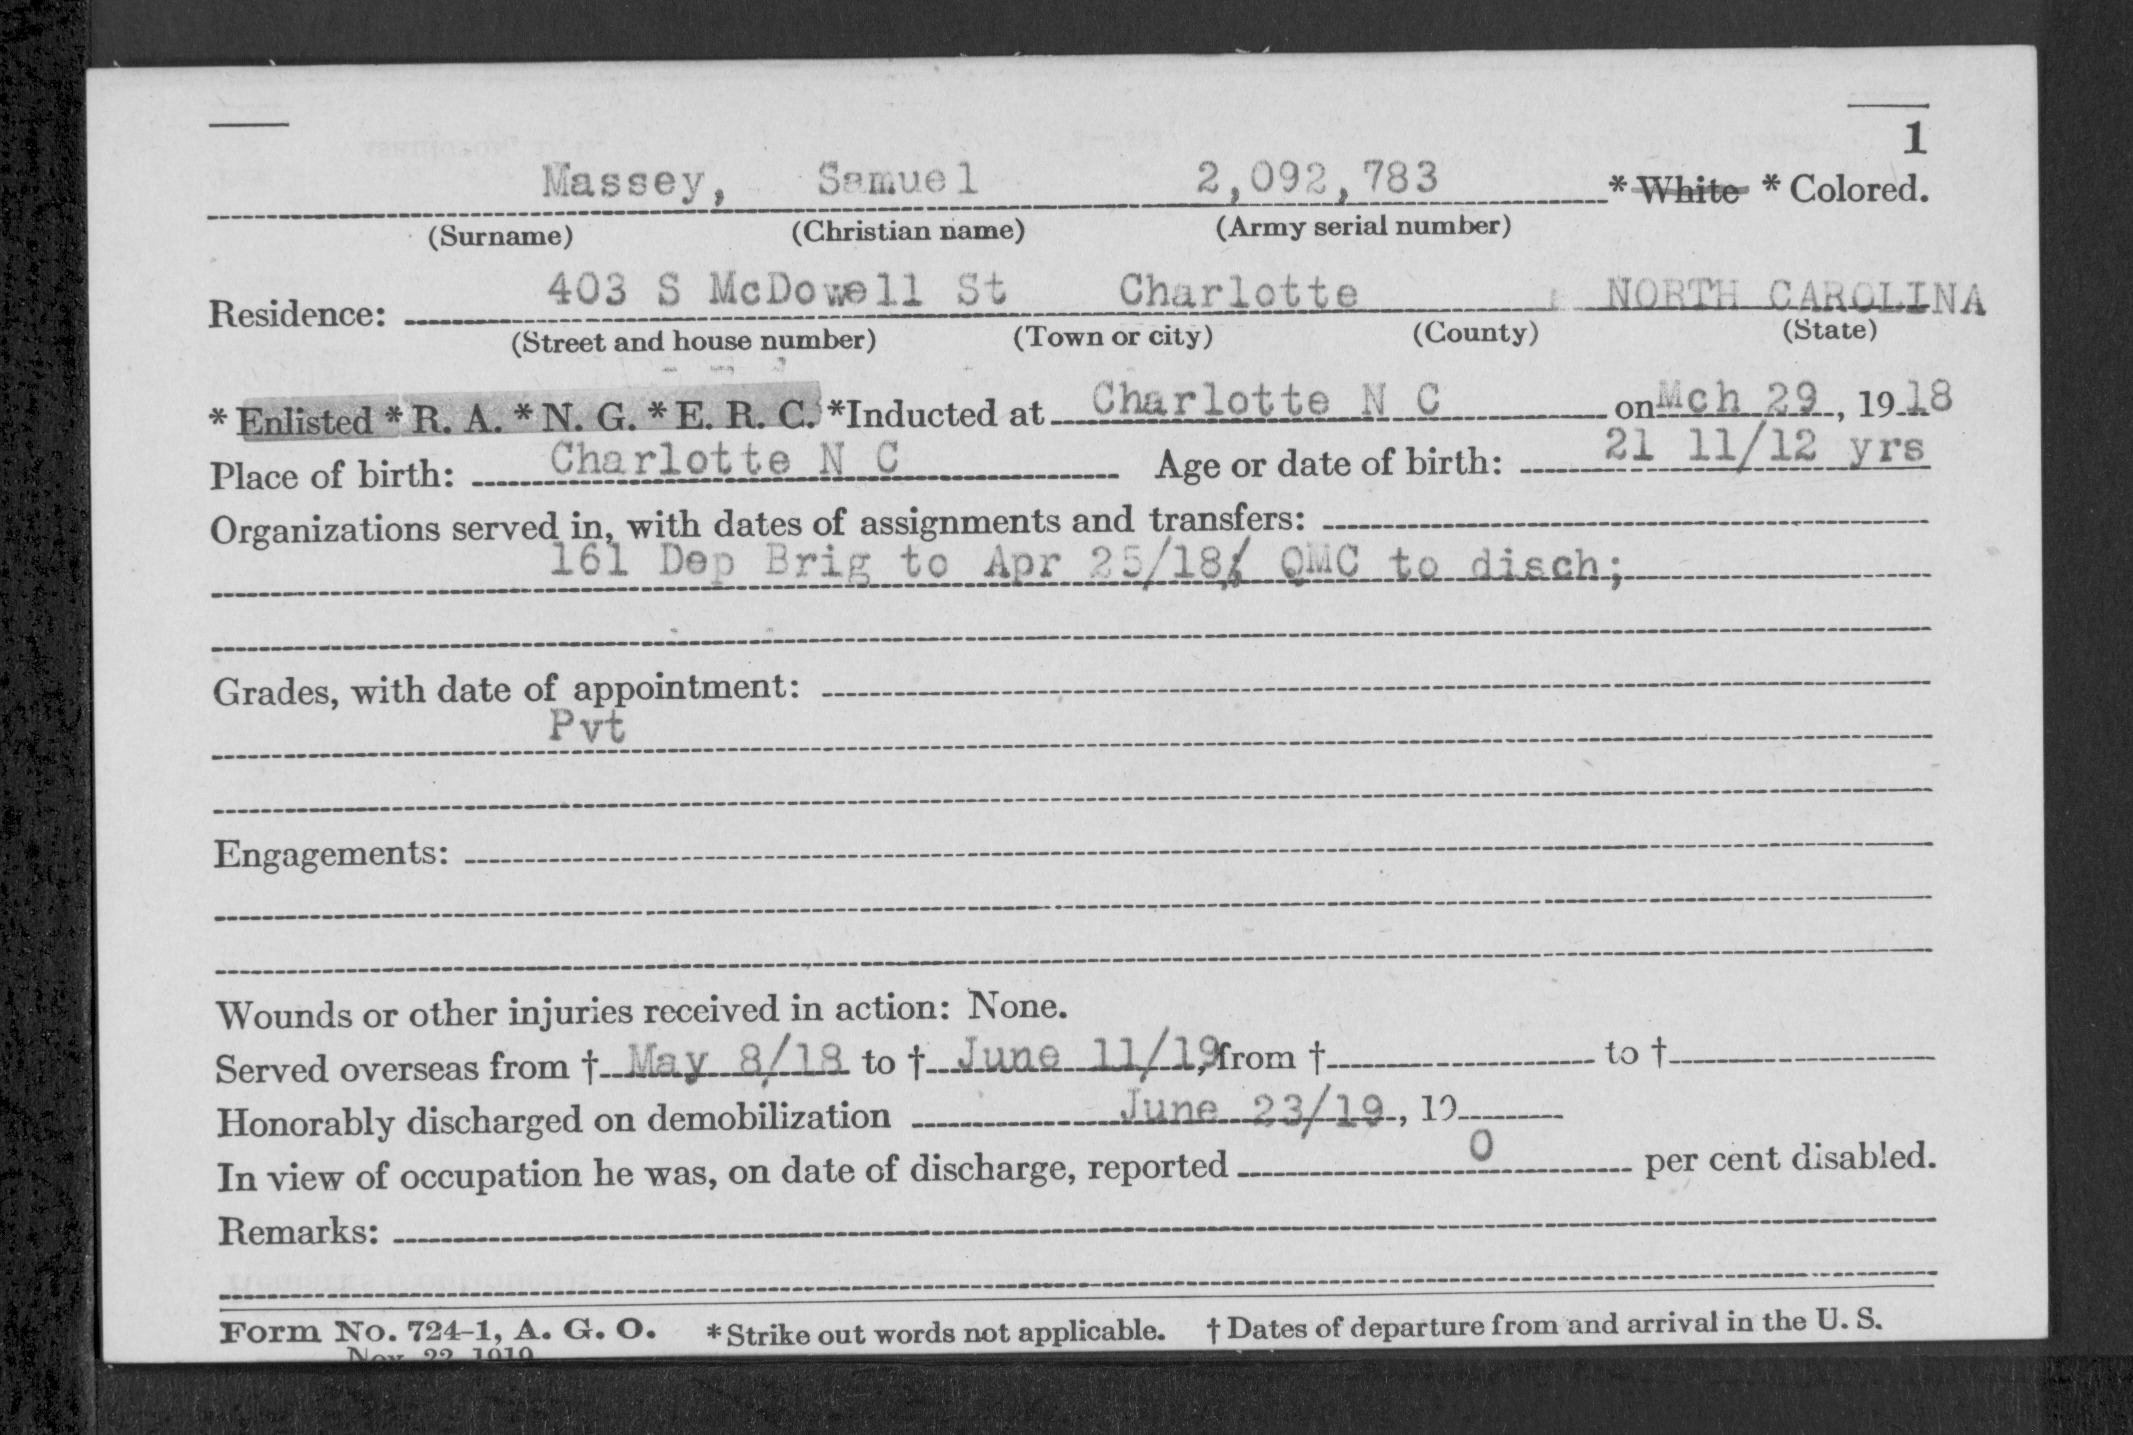 1
Massey, Samuel 2,092,783 * White * Colored.
(Surname) (Christian name) (Army serial number)
Residence: 403 S McDowell St Charlotte NORTH CAROLINA
(Street and house number) (Town or city) (County) (State)
* Enlisted * R. A. * N. G. * E. R. C. *Inducted at Charlotte N C on Mch 29, 1918
Place of birth: Charlotte N C Age or date of birth: 21 11/12 yrs
Organizations served in, with dates of assignments and transfers:
161 Dep Brig to Apr 25/18; QMC to disch;
Grades, with date of appointment:
Pvt
Engagements:
Wounds or other injuries received in action: None.
Served overseas from † May 8/18 to † June 11/19, from † to †
Honorably discharged on demobilization June 23/19, 19
In view of occupation he was, on date of discharge, reported 0 per cent disabled.
Remarks:
Form No. 724-1, A. G. O. * Strike out words not applicable. † Dates of departure from and arrival in the U. S.
Nov. 22 1919